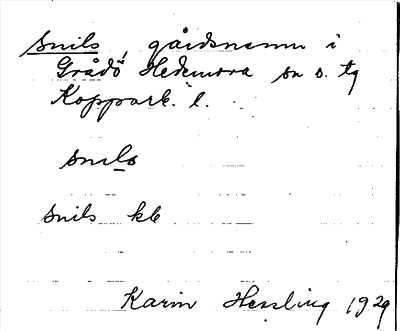 Snils, gårdsnamn i
Grådö Hedemora sn o. tg
Kopparb. l.
snils
snils kb
Karin Hessling 1929